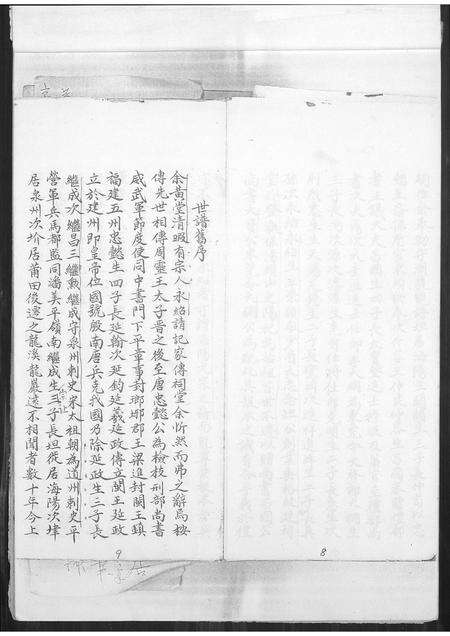 世譜舊序
余黃堂清暇有宗人永紹請記家傳祠堂余忻然而弗之辭焉按
傳先世相傳周靈王太子晉之後至唐忠懿公為檢校刑部尚書
威武軍節度使同中書門下平章事封瑯琊郡王梁進封閩王鎮
福建五州忠懿生四子長延翰次延鈞延羲延政傳立閩王延政
立於建州即皇帝位國號殷南唐兵克我國乃除延政生三子長
繼成次繼昌三繼勲繼成守泉州刺史宋太祖朝為道州刺史平
營軍兵馬都監同潘美平嶺南繼成生三子長坦從居海陽次埄
居泉州次圿居莆田後遷之龍溪龍巖遠不相聞者數十年今上
9
8